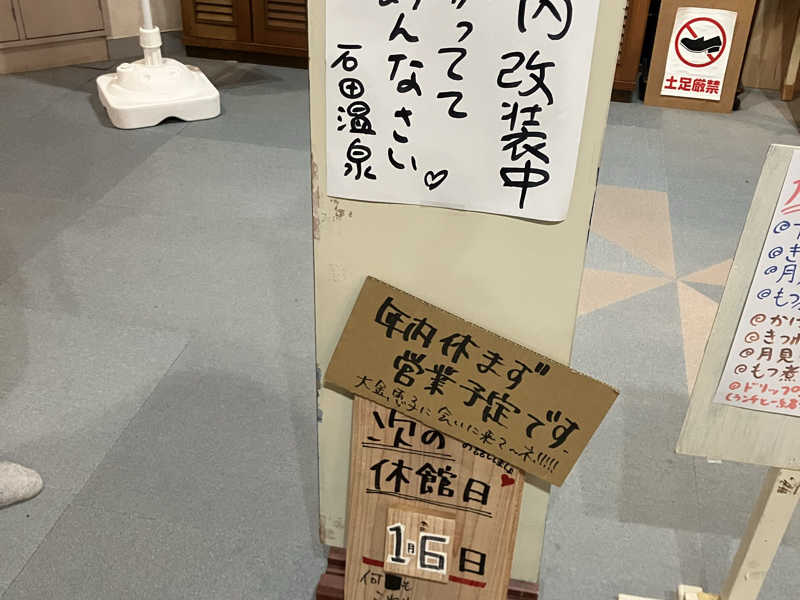 内改装中
かってて
めんなさい♡
石田温泉
土足厳禁
年内休まず
営業予定です
大金恵子に会いに来て〜ネ!!!!!
次の
休館日
1月6日
何
◎き
◎月
◎もつ
◎かけ
◎きつね
◎月見
◎もつ煮
◎ドリップ